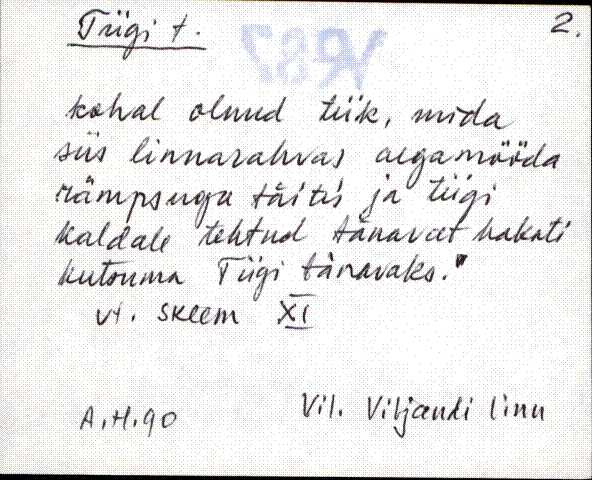 Tiigi t. 2.
kohal olnud tiik, mida
siis linnarahvas aegamööda
rämpsuga täitis ja tiigi
kaldale tehtud tänavat hakati
kutsuma Tiigi tänavaks."
vt. skeem XI
A.H.90 Vil. Viljandi linn